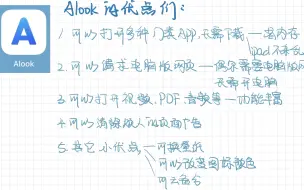 Alook的优点们:
Alook
1. 可以打开多种门类APP,无需下载 — 省内存
ipad不卡
2. 可以请求电脑版网页 — 偶尔需要电脑版网
无需开电脑
3. 可以打开视频、PDF、音频等 — 功能丰富
4. 可以清除烦人的页面广告
5. 其它小优点 — 可换壁纸
可以改变图标颜色
可